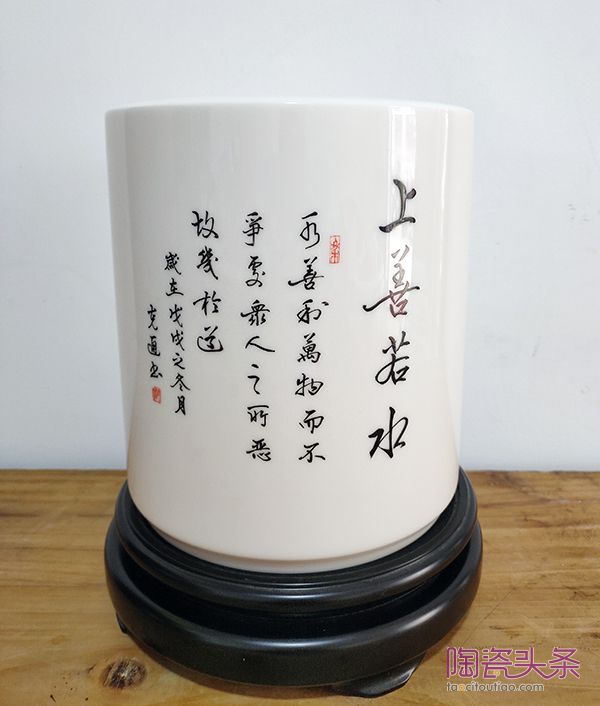 上善若水
水善利萬物而不
爭處衆人之所惡
故幾於道
歲在戊戌之冬月
克通书
陶瓷头条
taocitoutiao.com